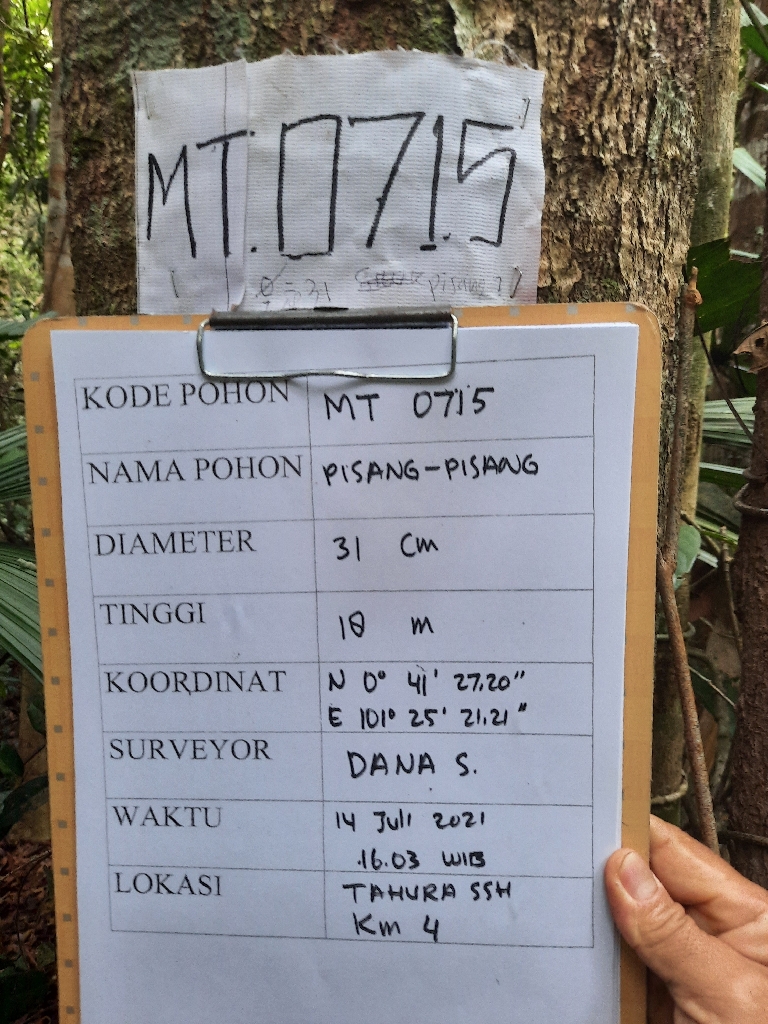 MT.0715
31 pisang2
KODE POHON MT 0715
NAMA POHON PISANG-PISANG
DIAMETER 31 Cm
TINGGI 18 m
KOORDINAT N 0° 41' 27.20"
E 101° 25' 21.21"
SURVEYOR DANA S.
WAKTU 14 Juli 2021
16.03 WIB
LOKASI TAHURA SSH
Km 4